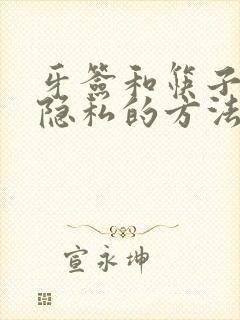 牙签和筷子
隐私的方法
宣永坤